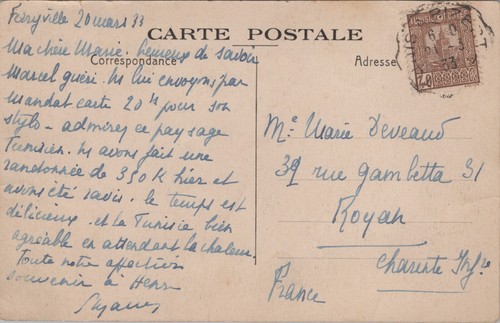 Ferryville 20 mars 33
CARTE POSTALE
Correspondance
Adresse
Ma chère Marie. heureux de savoir
Marcel guéri. Ns lui envoyons par
Mandat carte 20 frs pour son
stylo - admirez ce paysage
Tunisien. Ns avons fait une
randonnée de 350 K hier et
avons été ravis. le temps est
délicieux. et la Tunisie bien
agréable en attendant la chaleur.
Toute notre affection
souvenir à Henri
Mme Marie Deveaud
39 rue gambetta 31
Royan
Charente Infre
France